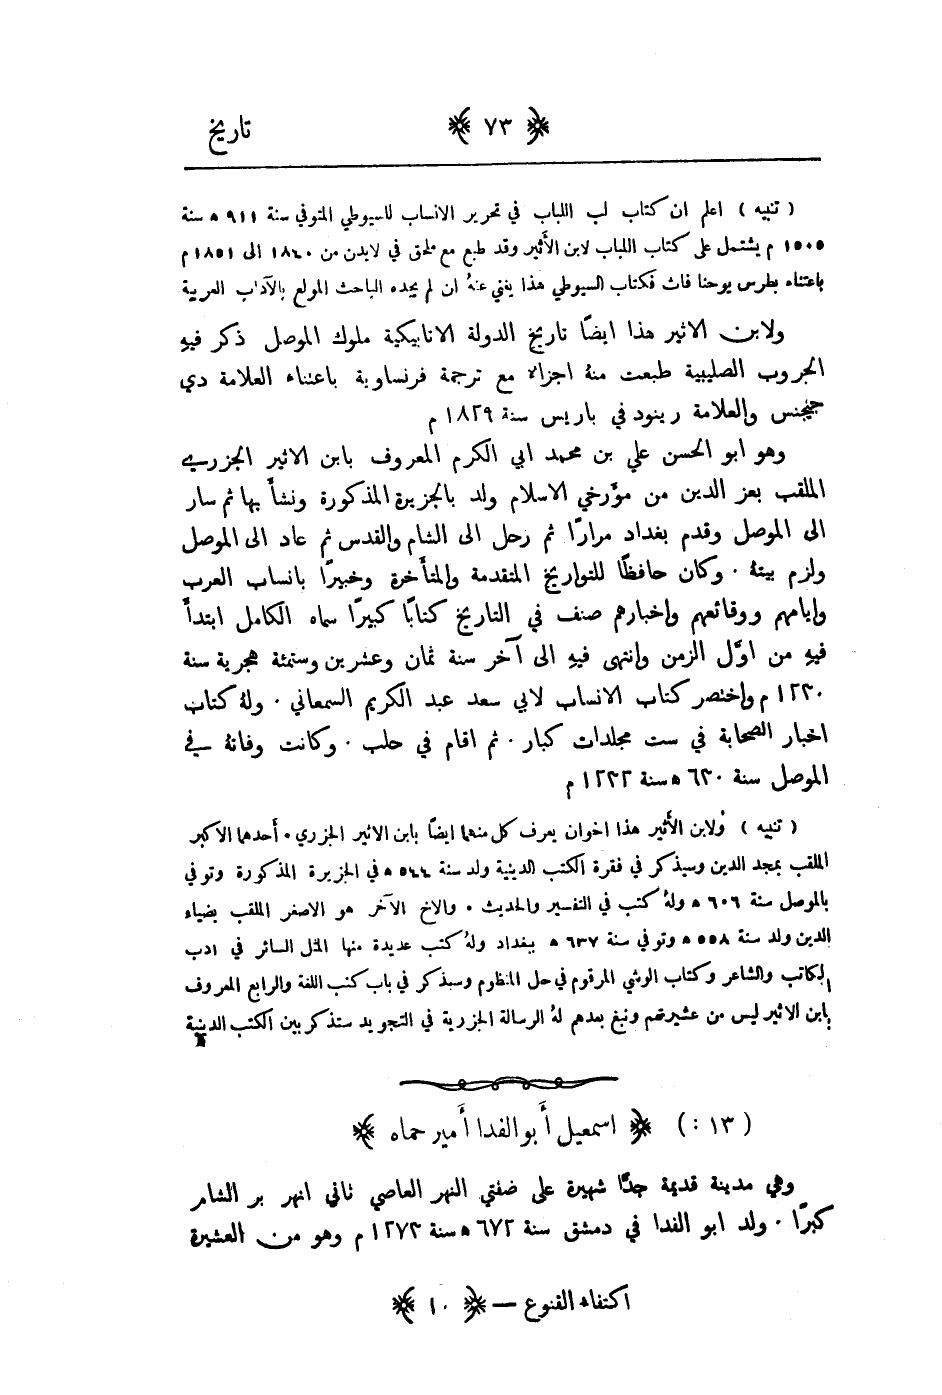 ﴿ ٧٣ ﴾ تاريخ
( تنبيه ) اعلم ان كتاب لب اللباب في تحرير الانساب للسيوطي المتوفي سنة ٩١١ ه سنة
١٥٠٥ م يشتمل على كتاب اللباب لابن الأثير وقد طبع مع ملحق في لايدن من ١٨٤٠ الى ١٨٥١ م
باعتناء بطرس يوحنا فاث فكتاب السيوطي هذا يغني عنهُ ان لم يجده الباحث المولع بالآداب العربية
ولابن الاثير هذا ايضًا تاريخ الدولة الاتابيكية ملوك الموصل ذكر فيهِ
الحروب الصليبية طبعت منهُ اجزاء مع ترجمة فرنساوية باعتناء العلامة دي
جينجنس والعلامة رينود في باريس سنة ١٨٢٩ م
وهو ابو الحسن علي بن محمد ابي الكرم المعروف بابن الاثير الجزري
الملقب بعز الدين من مؤرخي الاسلام ولد بالجزيرة المذكورة ونشأ بها ثم سار
الى الموصل وقدم بغداد مرارًا ثم رحل الى الشام والقدس ثم عاد الى الموصل
ولزم بيتهُ ٠ وكان حافظًا للتواريخ المتقدمة والمتأخرة وخبيرًا بانساب العرب
وايامهم ووقائعهم واخبارهم صنف في التاريخ كتابًا كبيرًا سماه الكامل ابتدأ
فيهِ من اوَّل الزمن وانتهى فيهِ الى آخر سنة ثمان وعشرين وستمئة هجرية سنة
١٢٣٠ م واختصر كتاب الانساب لابي سعد عبد الكريم السمعاني ٠ ولهُ كتاب
اخبار الصحابة في ست مجلدات كبار ٠ ثم اقام في حلب ٠ وكانت وفاتهُ في
الموصل سنة ٦٣٠ ه سنة ١٢٣٢ م
( تنبيه ) ولابن الأثير هذا اخوان يعرف كل منهما ايضًا بابن الاثير الجزري ٠ أحدهما الاكبر
الملقب بمجد الدين وسيذكر في فقرة الكتب الدينية ولد سنة ٥٤٤ ه في الجزيرة المذكورة وتوفي
بالموصل سنة ٦٠٦ ه ولهُ كتب في التفسير والحديث ٠ والاخ الآخر هو الاصغر الملقب بضياء
الدين ولد سنة ٥٥٨ ه وتوفي سنة ٦٣٧ ه ببغداد ولهُ كتب عديدة منها المثل السائر في ادب
الكاتب والشاعر وكتاب الوشي المرقوم في حل المنظوم وسيذكر في باب كتب اللغة والرابع المعروف
بابن الاثير ليس من عشيرتهم ونبغ بعدهم لهُ الرسالة الجزرية في التجويد ستذكر بين الكتب الدينية
( ١٣ : ) ﴿ اسمعيل أبو الفدا أمير حماه ﴾
وهي مدينة قديمة جدًّا شهيرة على ضفتي النهر العاصي ثاني انهر بر الشام
كبرًا ٠ ولد ابو الفدا في دمشق سنة ٦٧٢ ه سنة ١٢٧٣ م وهو من العشيرة
اكتفاء القنوع — ﴿ ١٠ ﴾